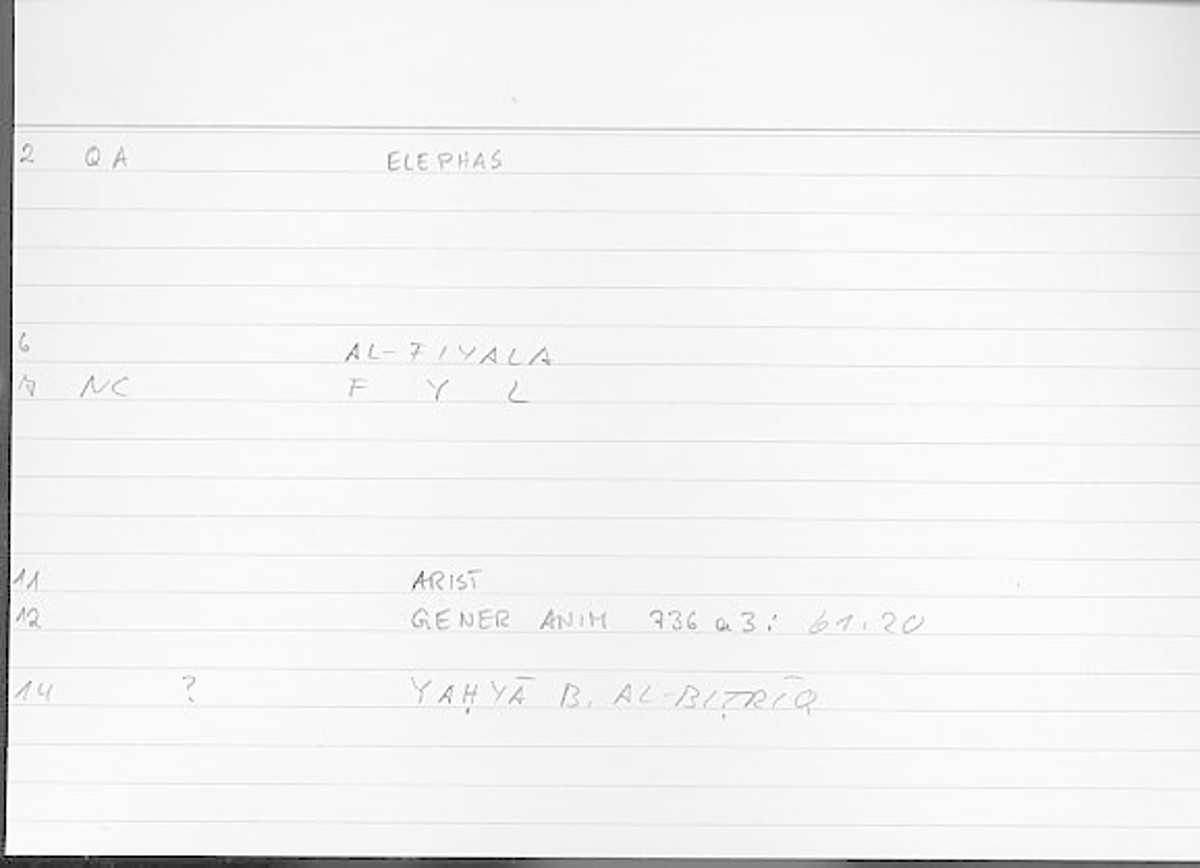 2 QA ELEPHAS
6 AL-FIYALA
7 NC F Y L
11 ARIST
12 GENER ANIM 736 a 3 : 61.20
14 ? YAḤYĀ B. AL-BIṬRĪQ